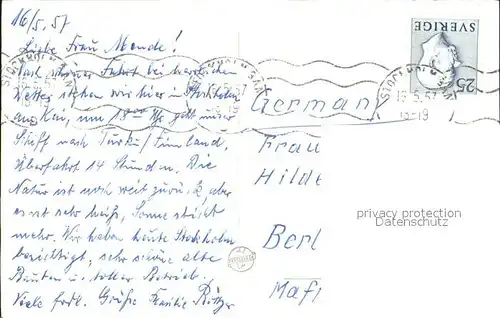 16/5. 57
Liebe Frau Mende!
Nach schöner Fahrt bei herrlichem
Wetter stehen wir hier in Stockholm
am Kai, um 18 00 Uhr geht unser
Schiff nach Turku/Finnland,
Überfahrt 14 Stunden. Die
Natur ist noch weit zurück, aber
es ist sehr heiß, Sonne sticht
mehr. Wir haben heute Stockholm
besichtigt, sehr schöne alte
Bauten u. toller Betrieb.
Viele frdl. Grüße Familie
SVERIGE
25
STOCKHOLM
16.5.57
18-19
German
Frau
Hilde
Berl
privacy protection
watermark